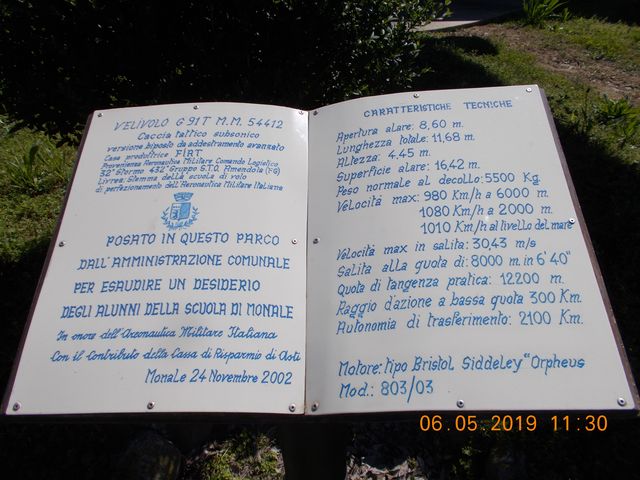 VELIVOLO G 91 T M.M. 54412
Caccia tattico subsonico
versione biposto da addestramento avanzato
Casa produttrice FIAT
Provenienza Aeronautica Militare Comando Logistico
32° Stormo 432° Gruppo S.T.O. Amendola (FG)
Livrea: Stemma della scuola di volo
di perfezionamento dell'Aeronautica Militare Italiana
POSATO IN QUESTO PARCO
DALL'AMMINISTRAZIONE COMUNALE
PER ESAUDIRE UN DESIDERIO
DEGLI ALUNNI DELLA SCUOLA DI MONALE
In onore dell'Aeronautica Militare Italiana
Con il Contributo della Cassa di Risparmio di Asti
Monale 24 Novembre 2002
CARATTERISTICHE TECNICHE
Apertura alare: 8,60 m.
Lunghezza totale: 11,68 m.
Altezza: 4,45 m.
Superficie alare: 16,42 m.
Peso normale al decollo: 5500 Kg.
Velocità max: 980 Km/h a 6000 m.
1080 Km/h a 2000 m.
1010 Km/h al livello del mare
Velocità max in salita: 30,43 m/s
Salita alla quota di: 8000 m. in 6' 40"
Quota di tangenza pratica: 12200 m.
Raggio d'azione a bassa quota 300 Km.
Autonomia di trasferimento: 2100 Km.
Motore: tipo Bristol Siddeley "Orpheus
Mod.: 803/03
06.05.2019 11:30